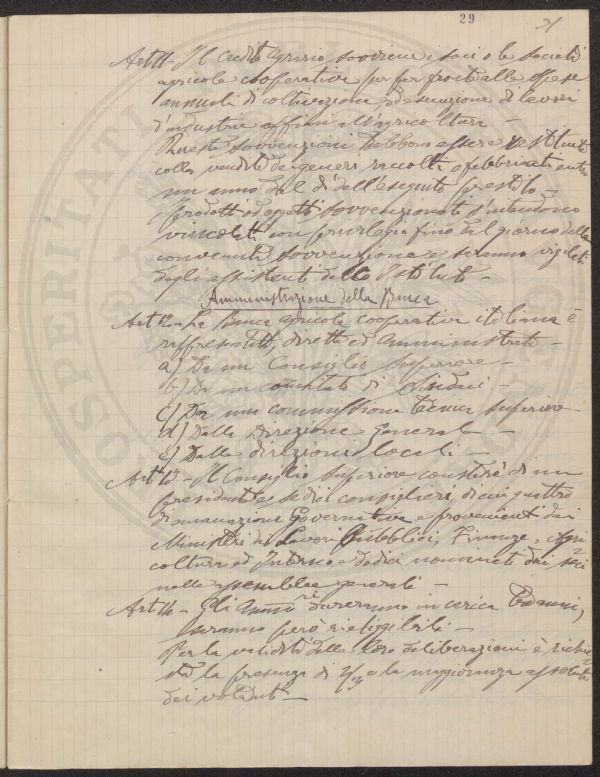 29
31
Art 11 - Il Credito agrario sovviene i soci o le società
agricole cooperative per far fronte alle spese
annuali di coltivazione, ed esecuzione di lavori
d'industrie affini all'agricoltura -
Queste sovvenzioni debbono essere restituite
colla vendita dei generi raccolti, o fabbricati entro
un anno dal dì dell'eseguito prestito -
I prodotti od oggetti sovvenzionati s'intendono
vincolati con privilegio fino del giorno della
convenuta sovvenzione e saranno vigilati
dagli assistenti dello Istituto -
Amministrazione della Banca
Art 12 - La Banca agricola cooperativa italiana è
rappresentata, diretta ed amministrata -
a) Da un Consiglio Superiore -
b) Da un comitato di Sindaci -
c) Da una commissione tecnica superiore -
d) Dalla Direzione Generale -
e) Dalle direzioni locali -
Art 13 - Il Consiglio Superiore consterà di un
presidente e sedici consiglieri, di cui quattro
di emanazione Governativa e provenienti dai
Ministeri dei Lavori Pubblici, Finanze, Agri
coltura ed Interno e dodici nominati dai soci
nelle assemblee generali -
Art 14 - Gli dureranno in carica anni,
saranno però rieleggibili -
Per la validità delle loro deliberazioni è richie
sta la presenza di 2/3 e la maggioranza assoluta
dei votanti -
OSPERITATI